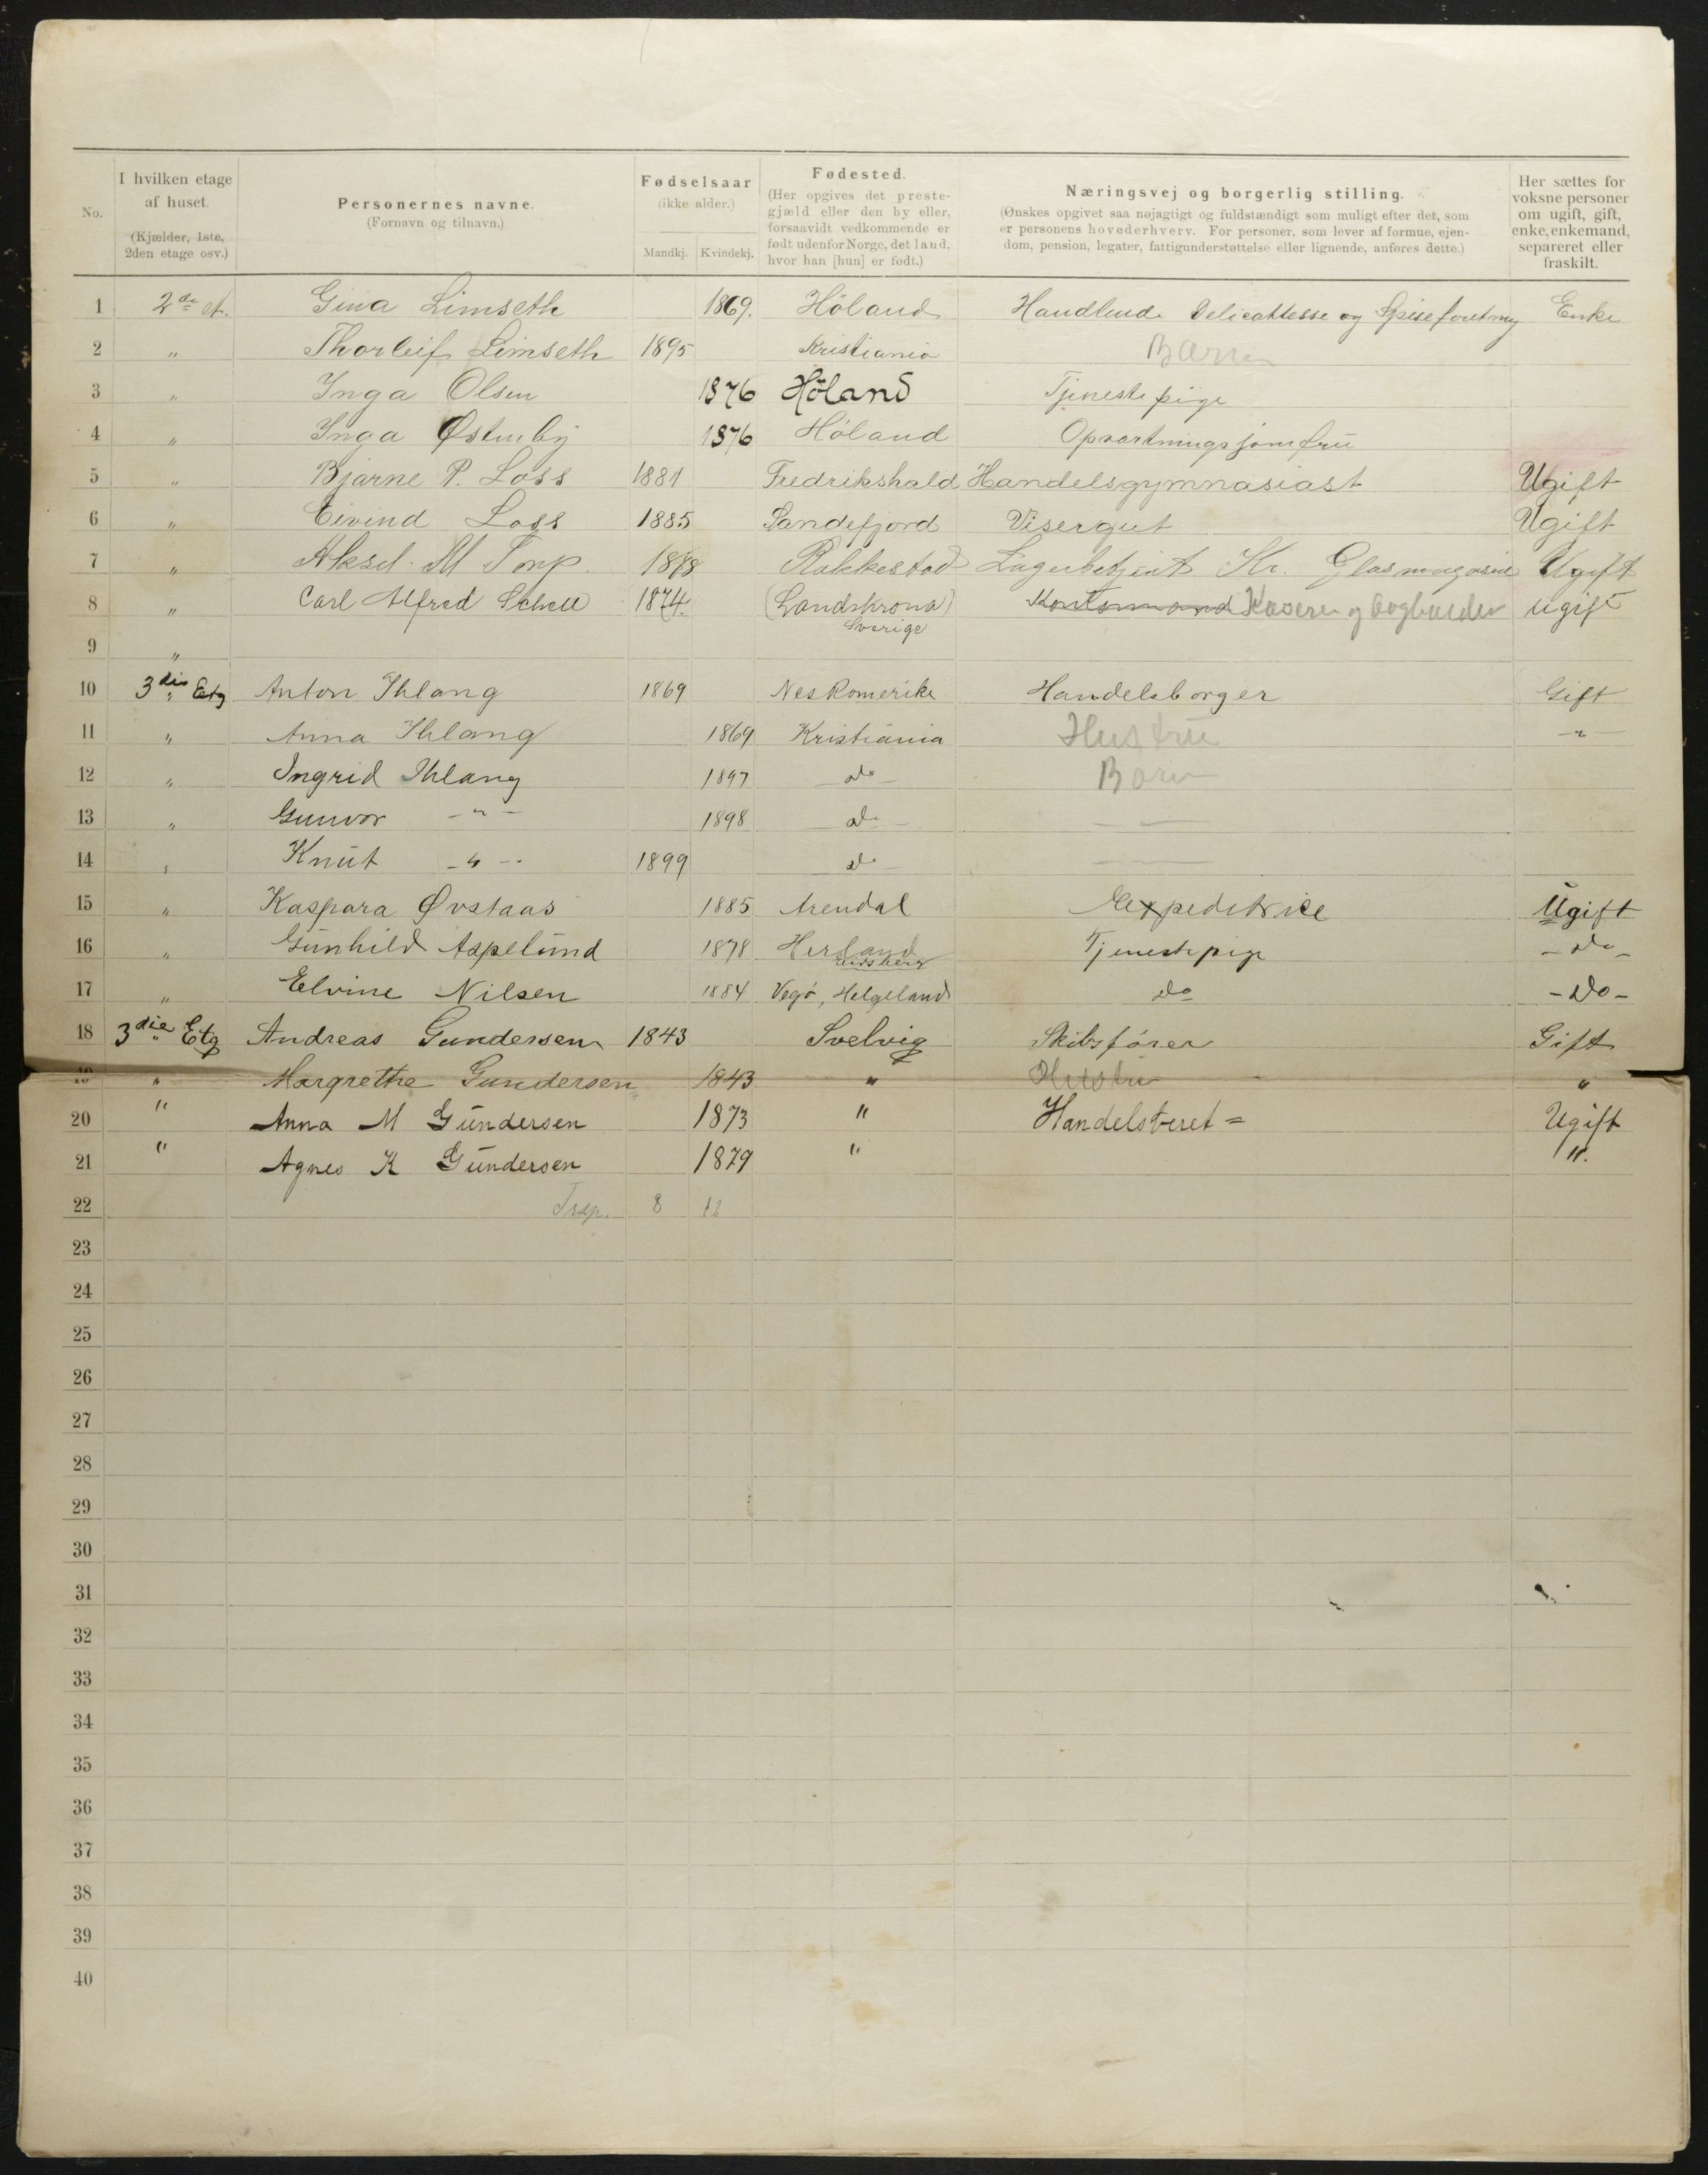 No.
I hvilken etage af huset.
(Kjælder, 1ste, 2den etage osv.)
Personernes navne.
(Fornavn og tilnavn.)
Fødselsaar
(ikke alder.)
Mandkj. Kvindekj.
Fødested.
(Her opgives det preste-
gjæld eller den by eller,
forsaavidt vedkommende er
født udenfor Norge, det land,
hvor han [hun] er født.)
Næringsvej og borgerlig stilling.
(Ønskes opgivet saa nøjagtigt og fuldstændigt som muligt efter det, som
er personens hovederhverv. For personer, som lever af formue, ejen-
dom, pension, legater, fattigunderstøttelse eller lignende, anføres dette.)
Her sættes for
voksne personer
om ugift, gift,
enke, enkemand,
separeret eller
fraskilt.
1 2de et. Gina Limseth 1869. Höland Handlende Delicattesse og Spiseforetning Enke
2 " Thorleif Limseth 1895 Kristiania Barn
3 " Inga Olsen 1876 Höland Tjenestepige
4 " Inga Østenby 1876 Höland Opvartningsjomfru
5 " Bjarne P. Loss 1881 Fredrikshald Handelsgymnasiast Ugift
6 " Eivind Loss 1885 Sandefjord Visergut Ugift
7 " Aksel M Torp. 1878 Rakkestad Lagerbetjent Kr. Glasmagasin Ugift
8 " Carl Alfred Schell 1874. (Landskrona) Kontormand Kaserer og bogholder ugift
Sverige
9 "
10 3die Etg Anton Ihlang 1869 Nes Romerike Handelsborger Gift
11 " Anna Ihlang 1869 Kristiania Hustru - " -
12 " Ingrid Ihlang 1897 do Barn
13 " Gunvor - " - 1898 do — —
14 " Knut - " - 1899 do — —
15 " Kaspara Øvstaas 1885 Arendal Expeditrice Ugift
16 " Gunhild Aspelund 1878 Herland Tjenestepige - do -
Eidsberg
17 " Elvine Nilsen 1884 Vegø, Helgeland do - Do -
18 3die Etg Andreas Gundersen 1843 Svelvig Skibsfører Gift
19 " Margrethe Gundersen 1843 " Hustru "
20 " Anna M Gundersen 1873 " Handelsberet = Ugift
21 " Agnes K Gundersen 1879 " ".
22 8 12
23
24
25
26
27
28
29
30
31
32
33
34
35
36
37
38
39
40